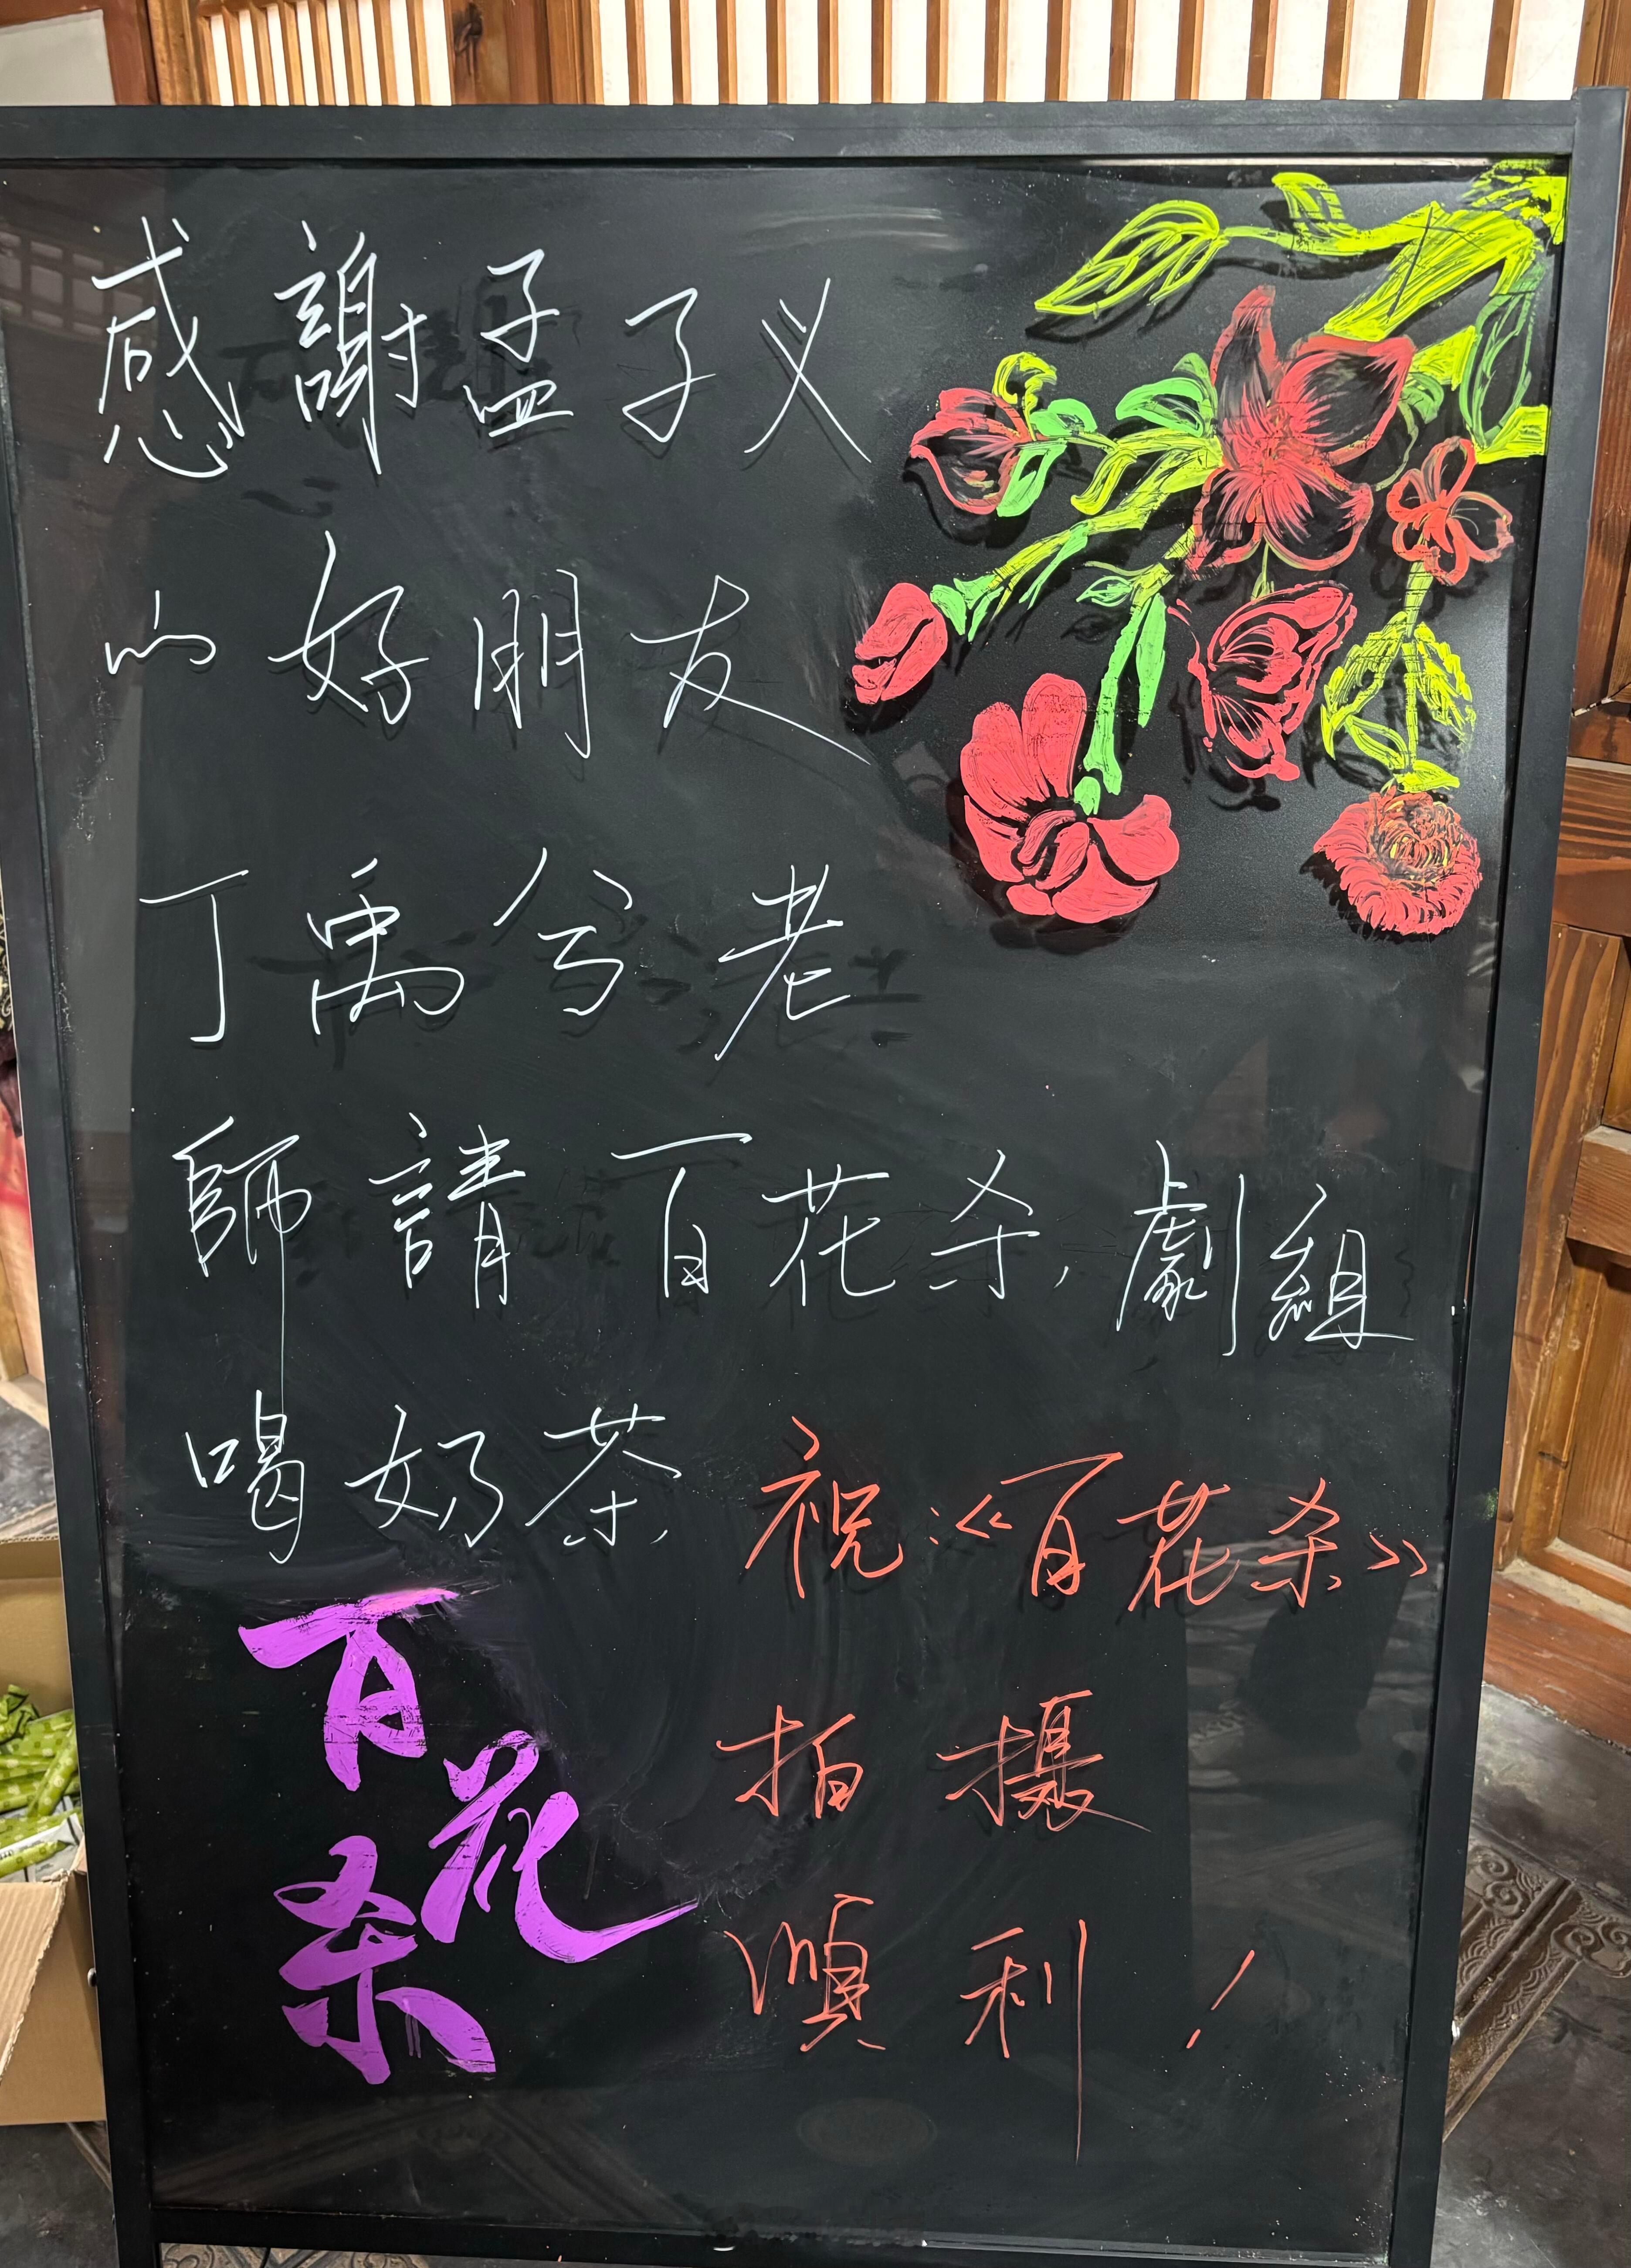 感謝孟子义
的好朋友
丁禹兮老
師請百花杀劇組
喝奶茶
祝:《百花杀》
拍攝
順利!
百花杀